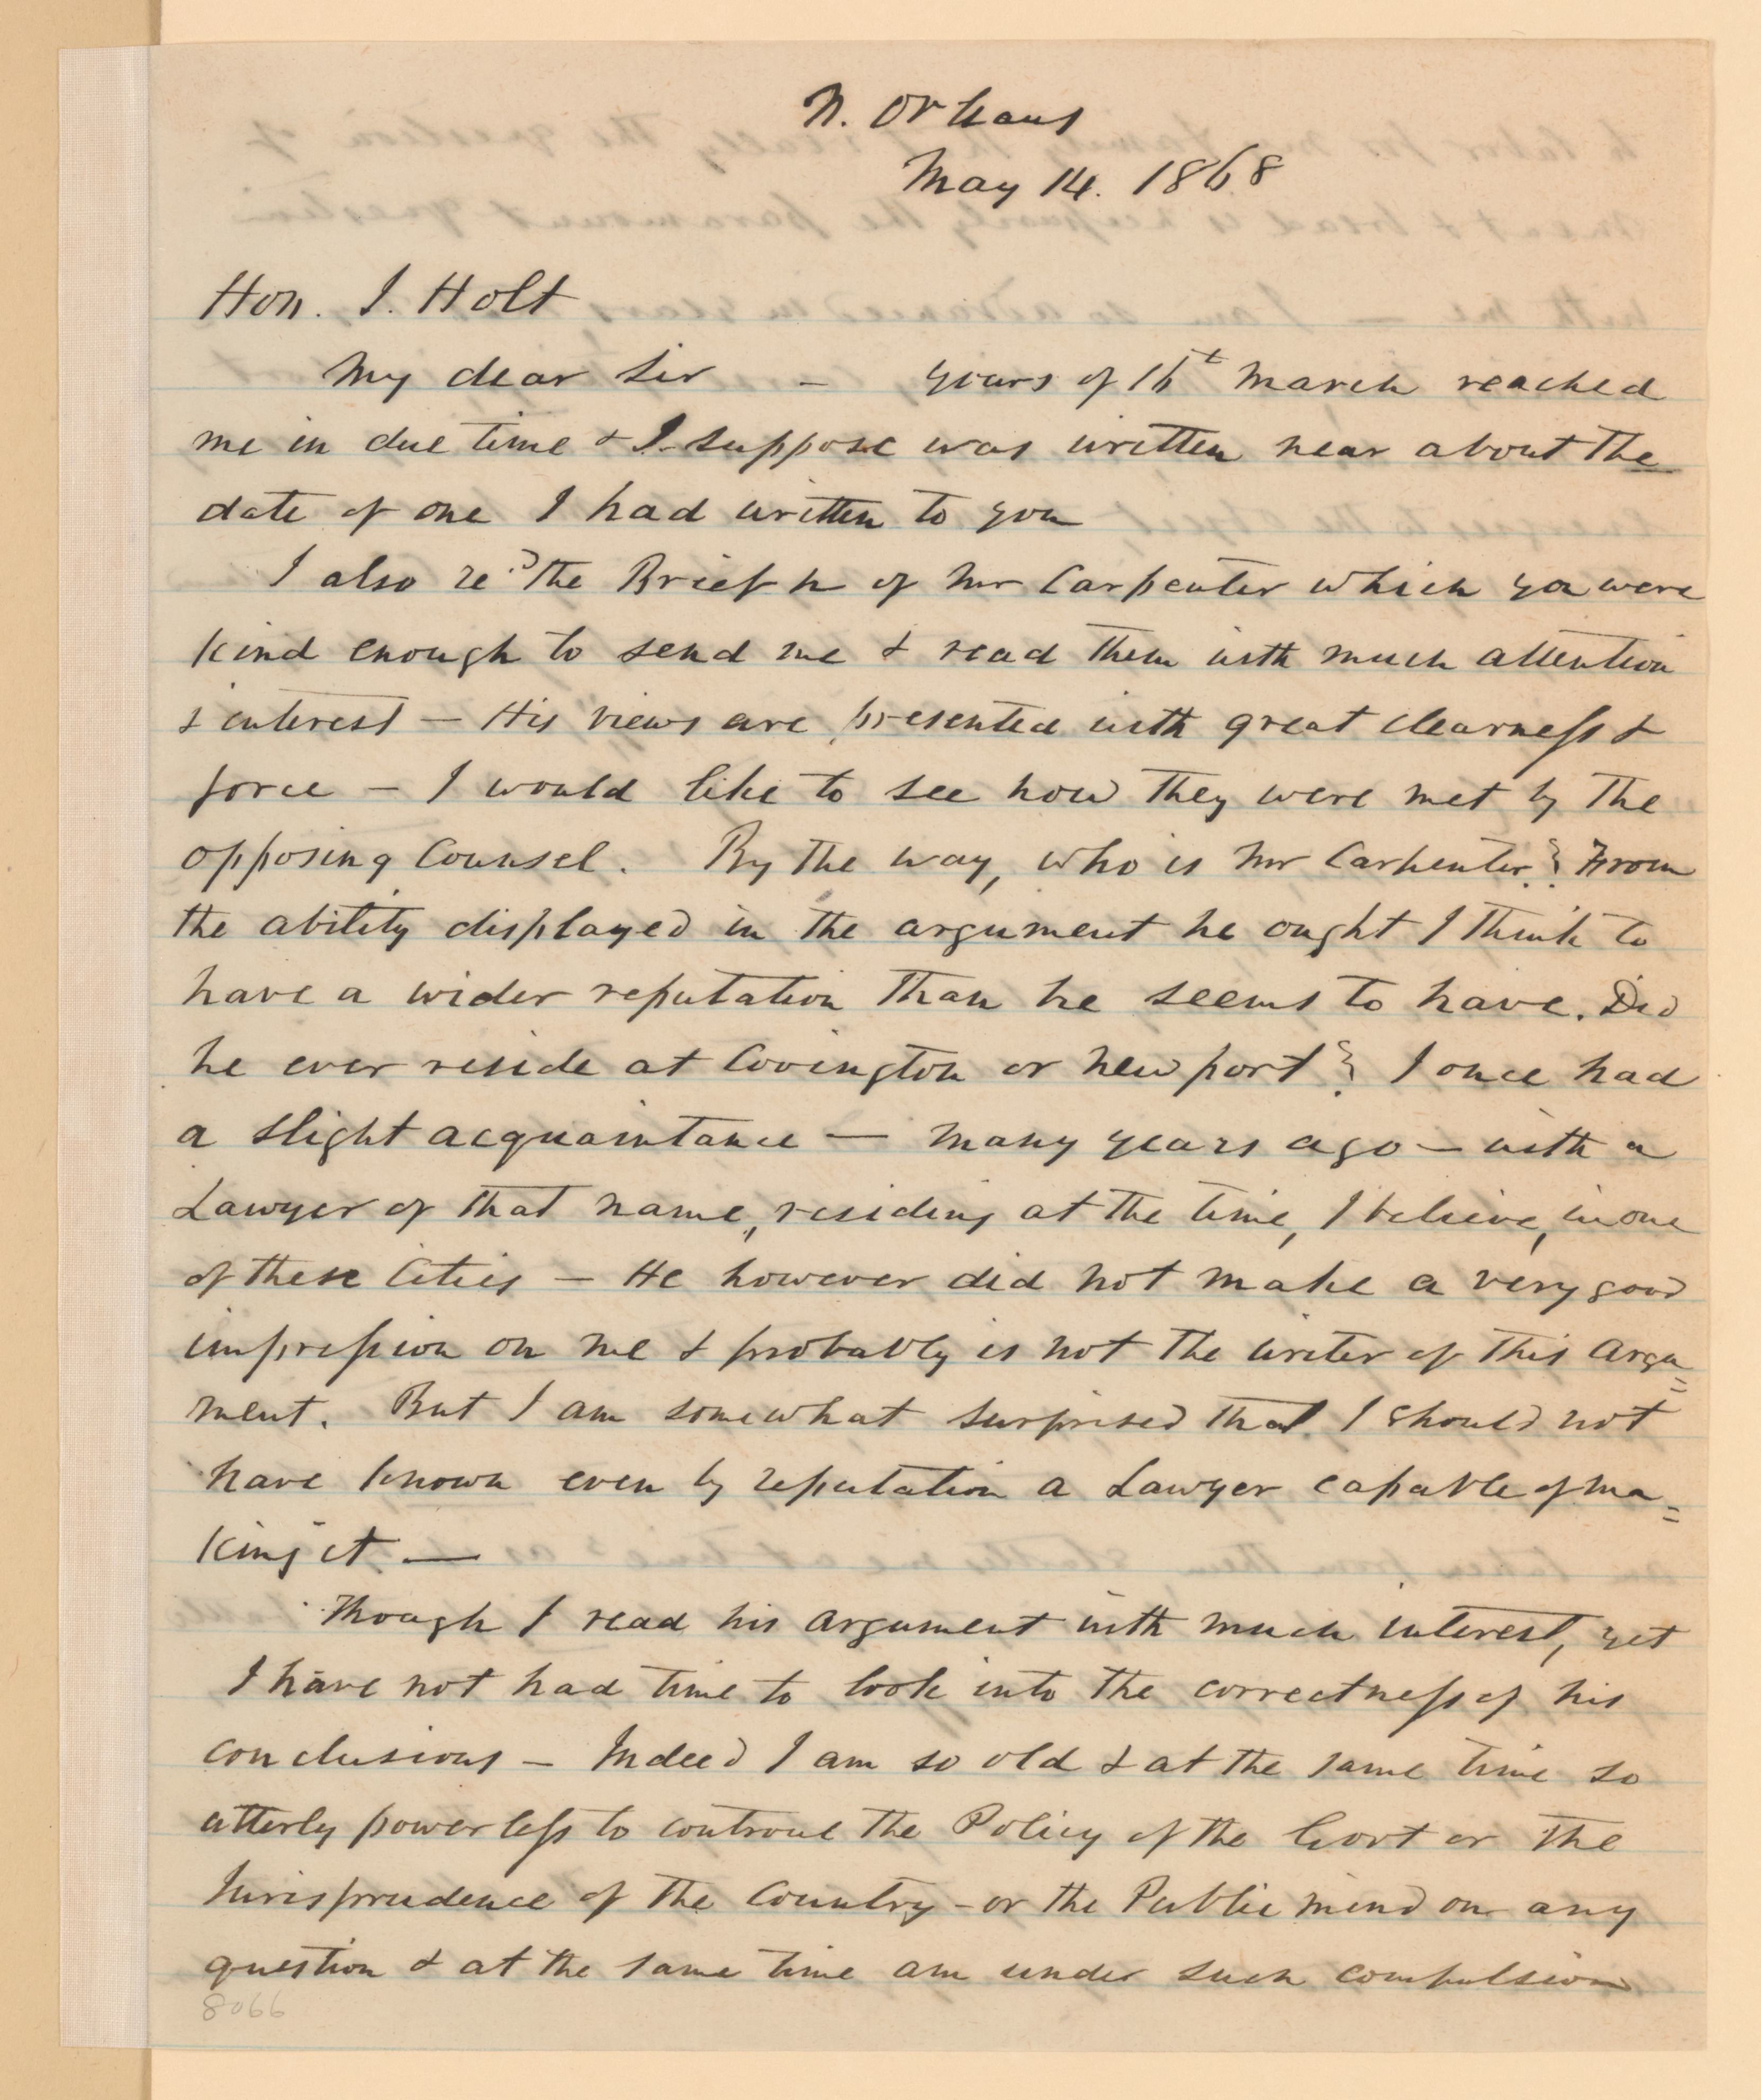 N. Orleans
May 14. 1868
Hon. J. Holt
My dear Sir - yours of 16t March reached
me in due time & I suppose was written near about the
date of one I had written to you
I also re'd the Brief of Mr Carpenter which you were
kind enough to send me & read them with much attention
& interest — His views are presented with great clearness &
force — I would like to see how they were met by the
opposing Counsel. By the way, who is Mr Carpenter? From
the ability displayed in the argument he ought I think to
have a wider reputation than he seems to have. Did
he ever reside at Covington or Newport? I once had
a slight acquaintance — many years ago — with a
Lawyer of that name, residing at the time, I believe, in one
of these Cities — He however did not make a very good
impression on me & probably is not the writer of this Argu=
ment. But I am somewhat surprised that I should not
have known even by reputation a Lawyer capable of ma=
king it —
Though I read his argument with much interest, yet
I have not had time to look into the correctness of his
conclusions — Indeed I am so old & at the same time so
utterly powerless to controul the Policy of the Govt or the
Jurisprudence of the Country - or the Public mind on any
question & at the same time am under such compulsion
8066